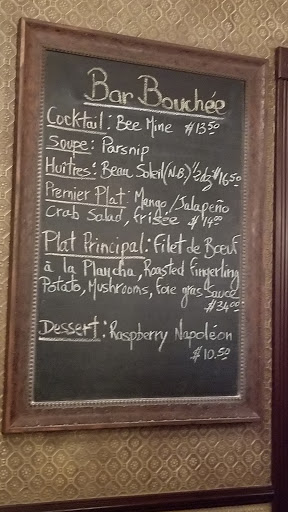 Bar Bouchée
Cocktail: Bee Mine $13.50
Soupe: Parsnip
Huîtres: Beau Soleil (N.B.) 1/2 dz $16.50
Premier Plat: Mango/Jalapeño
Crab Salad, frisée $14.00
Plat Principal: Filet de Bœuf
à la Plancha, Roasted Fingerling
Potato, Mushrooms, foie gras Sauce
$34.00
Dessert: Raspberry Napoléon
$10.50